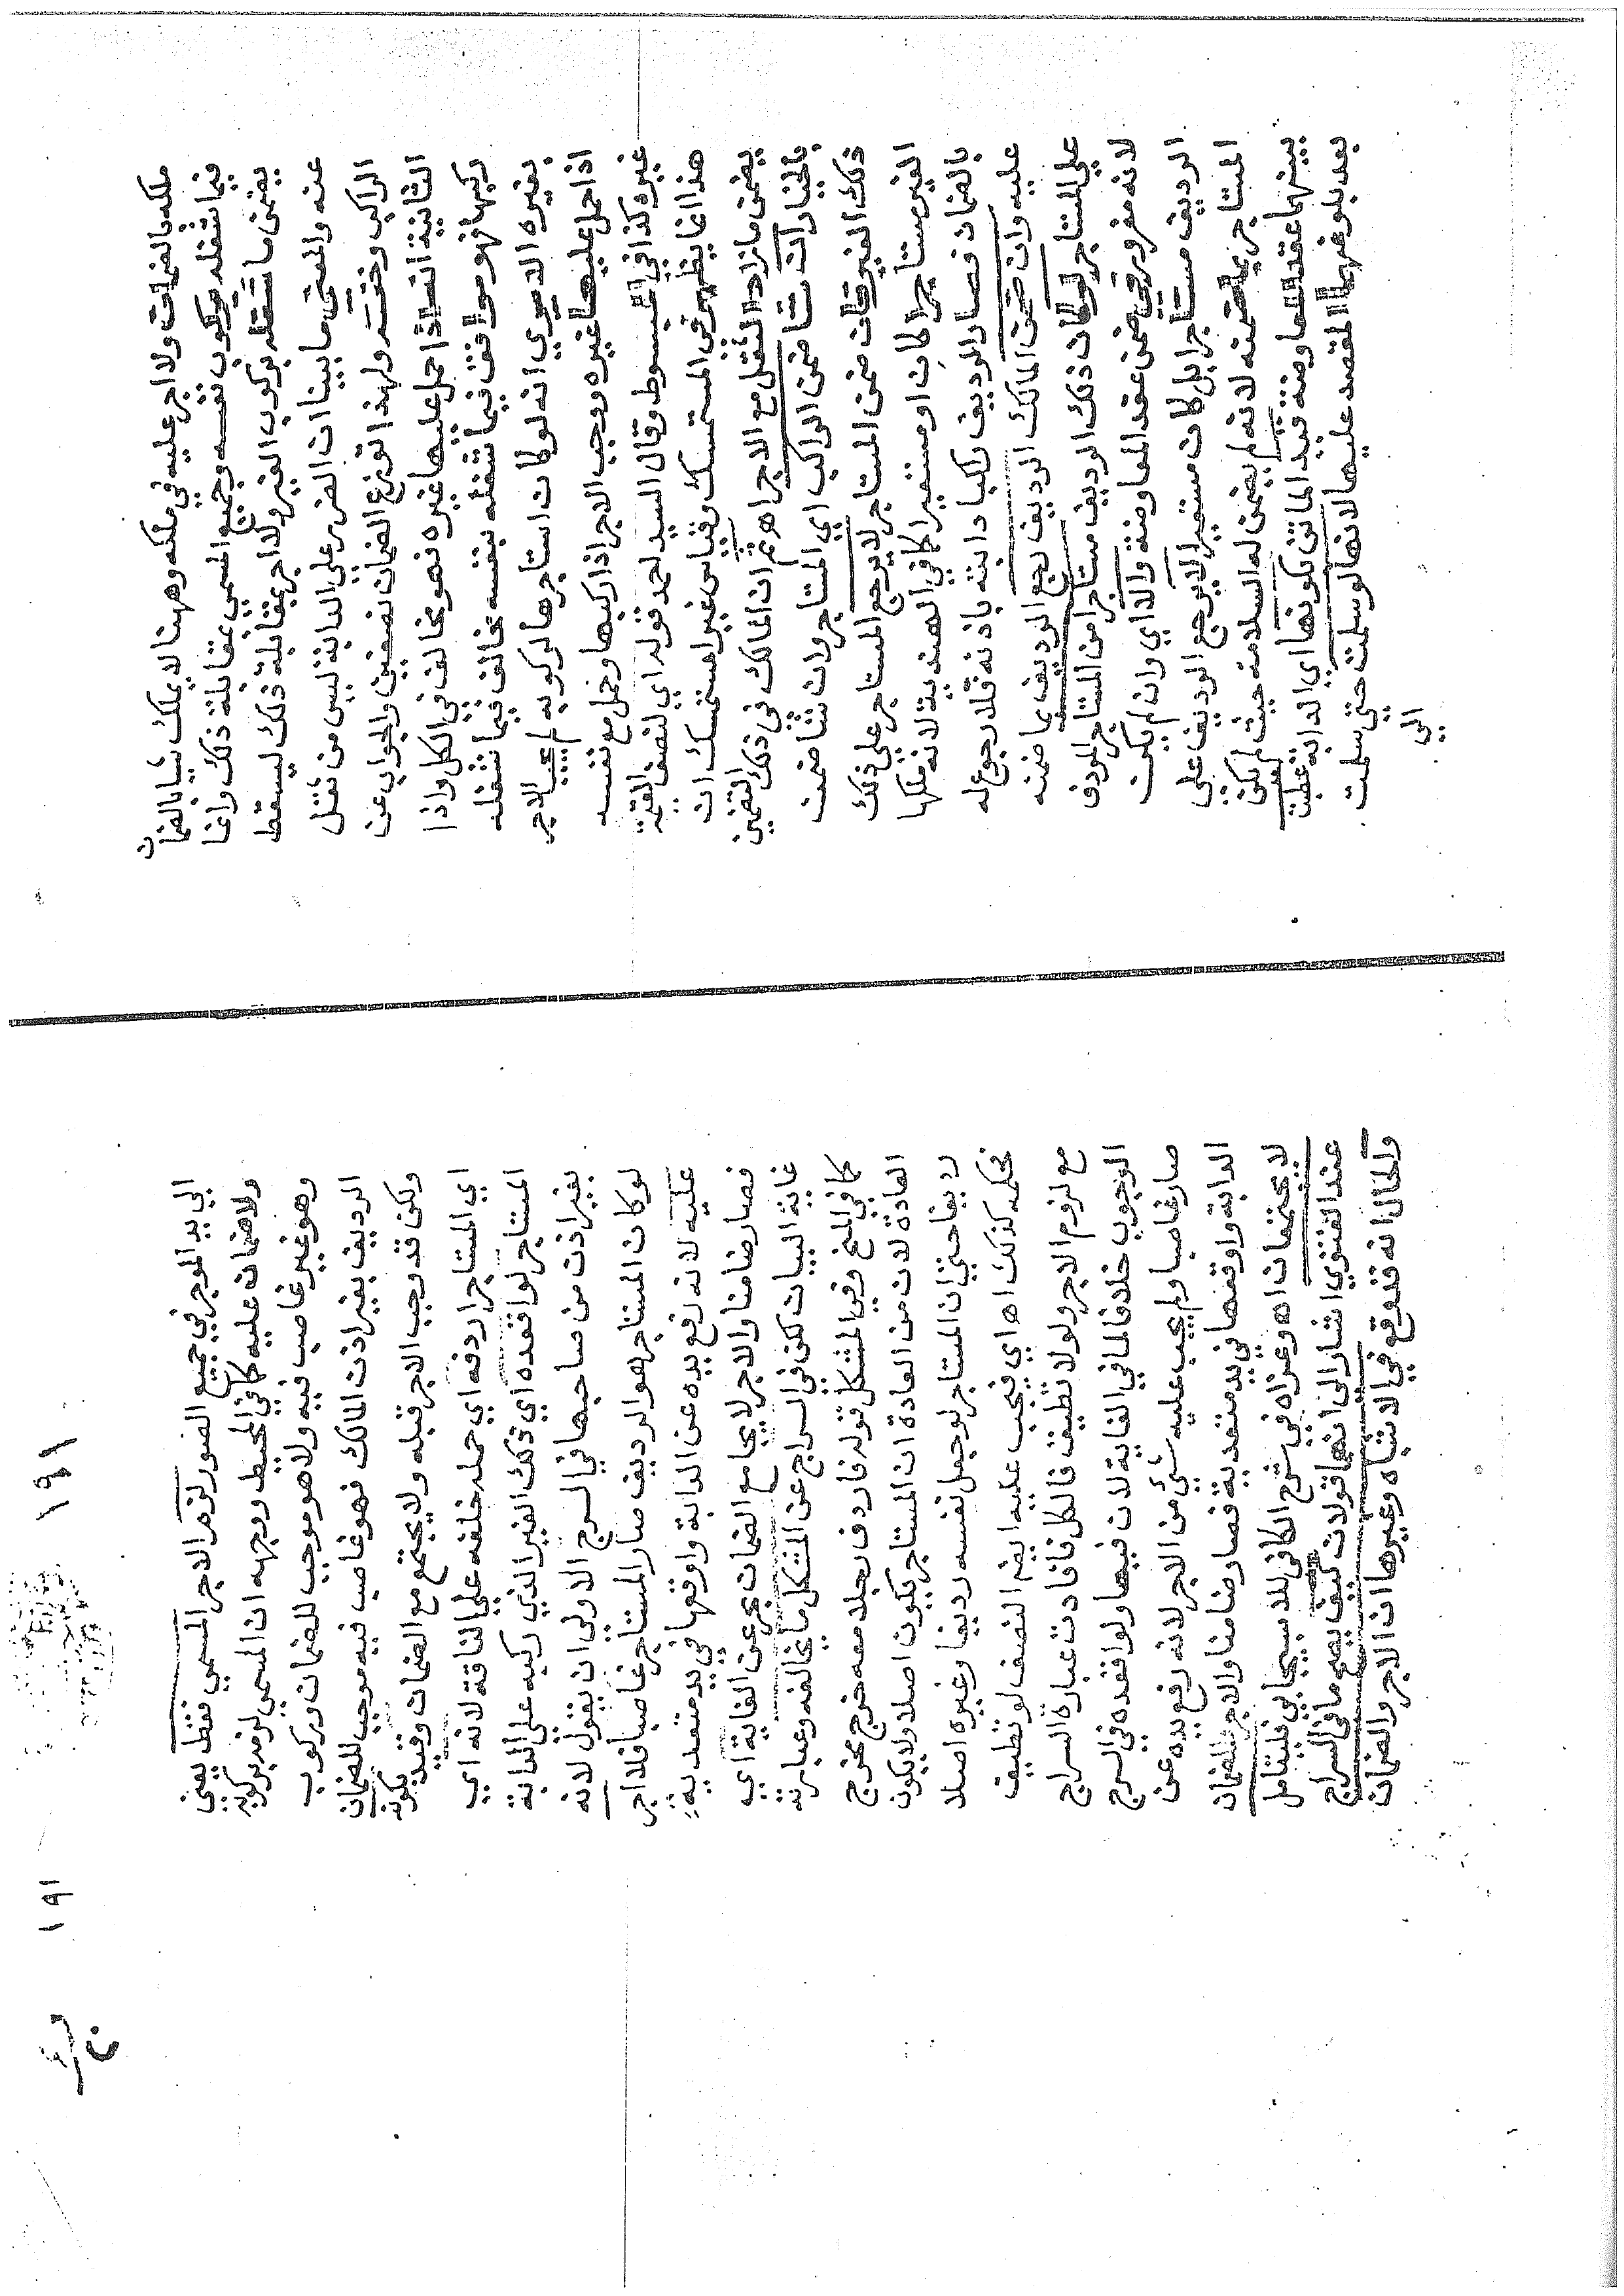 ملكه بالضمان ولا اجر عليه في ملكه وههنا لا يملك شيا بالضمان
فيما شغله بركوب نفسه وجميع المسمي بمقابلة ذلك وانما
يضمن ما شغله بركوب الغير ولا اجر بمقابلة ذلك ليسقط
عنه والمعنى ما بينا ان الضرر علي الدابة ليس من ثقل
الراكب وخفته ولهذا توزع الضمان نصفين والجواب عن
الثانية انه اذا حمل عليها غيره فهو مخالف في الكل واذا
ركبها فهو موافق فيما شغله بنفسه مخالف فيما شغله
بغيره الا يري انه لو كان استاجرها لركوبه لم يجب الاجر
اذا حمل عليها غيره ووجب الاجر اذا ركبها وحمل مع نفسه
غيره كذا في المبسوط وقال السيد احمد قوله اي لنصف القيمة
هذا انما يظهر في المستمسك وقياس غير المستمسك ان
يضمن ما زاد الثقل مع الاجر اه ثم ان المالك في ذلك التضمين
بالخيار ان شا ضمن الراكب اي المستاجر وان شا ضمن
ذلك الغير فان ضمن المستاجر لا يرجع المستاجر علي ذلك
الغير مستاجرا كان او مستعيرا كما في الهندية لانه ملكها
بالضمان فصار الرديف راكبا دابته باذنه فلا رجوع له
عليه وان ضمن المالك الرديف رجع الرديف بما ضمنه
علي المستاجر لو كان ذلك الرديف مستاجرا من المستاجر المردف
لانه مغرور في ضمن عقد المعاوضة والا اي وان لم يكن
الرديف مستاجرا بل كان مستعيرا لا يرجع الرديف على
المستاجر بما ضمنه لانه لم يضمن له السلامة حيث لم يكن
بينهما عقد المعاوضة قيد الماتن بكونها اي الدابة عطبت
بعد بلوغهما المقصد عليها لانها لو سلمت حتى سلمت
الي
١٩١
الي يد الموجر في جميع الصور لزم الاجر المسمي فقط يعني
ولا ضمان عليه كما في المحيط ووجهه ان المسمي لزمه بركوبه
وهو غير غاصب فيه ولا هو موجب للضمان وركوب
الرديف بغير اذن المالك فهو غاصب فيه موجب للضمان
ولكن قد وجب الاجر قبله ولا يجتمع مع الضمان وقيد بكونه
اي المستاجر اردفه اي حمله خلفه علي الناقة لانه اي
المستاجر لو اقعده اي ذلك الغير الذي ركبه علي الدابة
بغير اذن من صاحبها في السرج الاولى ان يقول لانه
لو كان المستاجر هو الرديف صار المستاجر غاصبا فلا اجر
عليه لانه رفع يده عن الدابة واوقعها في يد متعدية
فصار ضامنا والاجر لا يجامع الضمان بحر عن الغاية اي
غاية البيان لكن في السراج عن المشكل ما يخالفه وعبارته
كما في المنح وفي المشكل قوله فاردف رجلا معه خرج مخرج
العادة لان من العادة ان المستاجر يكون اصلا ولا يكون
رديفا حتى ان المستاجر لو جعل نفسه رديفا وغيره اصلا
فحكمه كذلك اه اي فيجب عليه ايضا النصف لو تطيق
مع لزوم الاجر ولو لا تطيق فالكل فافادت عبارة السراج
الوجوب خلافا لما في الغاية لان فيها ولو اقعده في السرج
صار غاصبا ولم يجب عليه شئ من الاجر لانه رفع يده عن
الدابة واوقعها في يد متعدية فصار ضامنا والاجر والضمان
لا يجتمعان اه وعزاه في شرح الكافي للاسبيجابي فليتامل
عند الفتوي اشار الى انهما قولان كيف يصح ما في السراج
والحال انه قد وقع في الاشباه وغيرها ان الاجر والضمان
١٩١